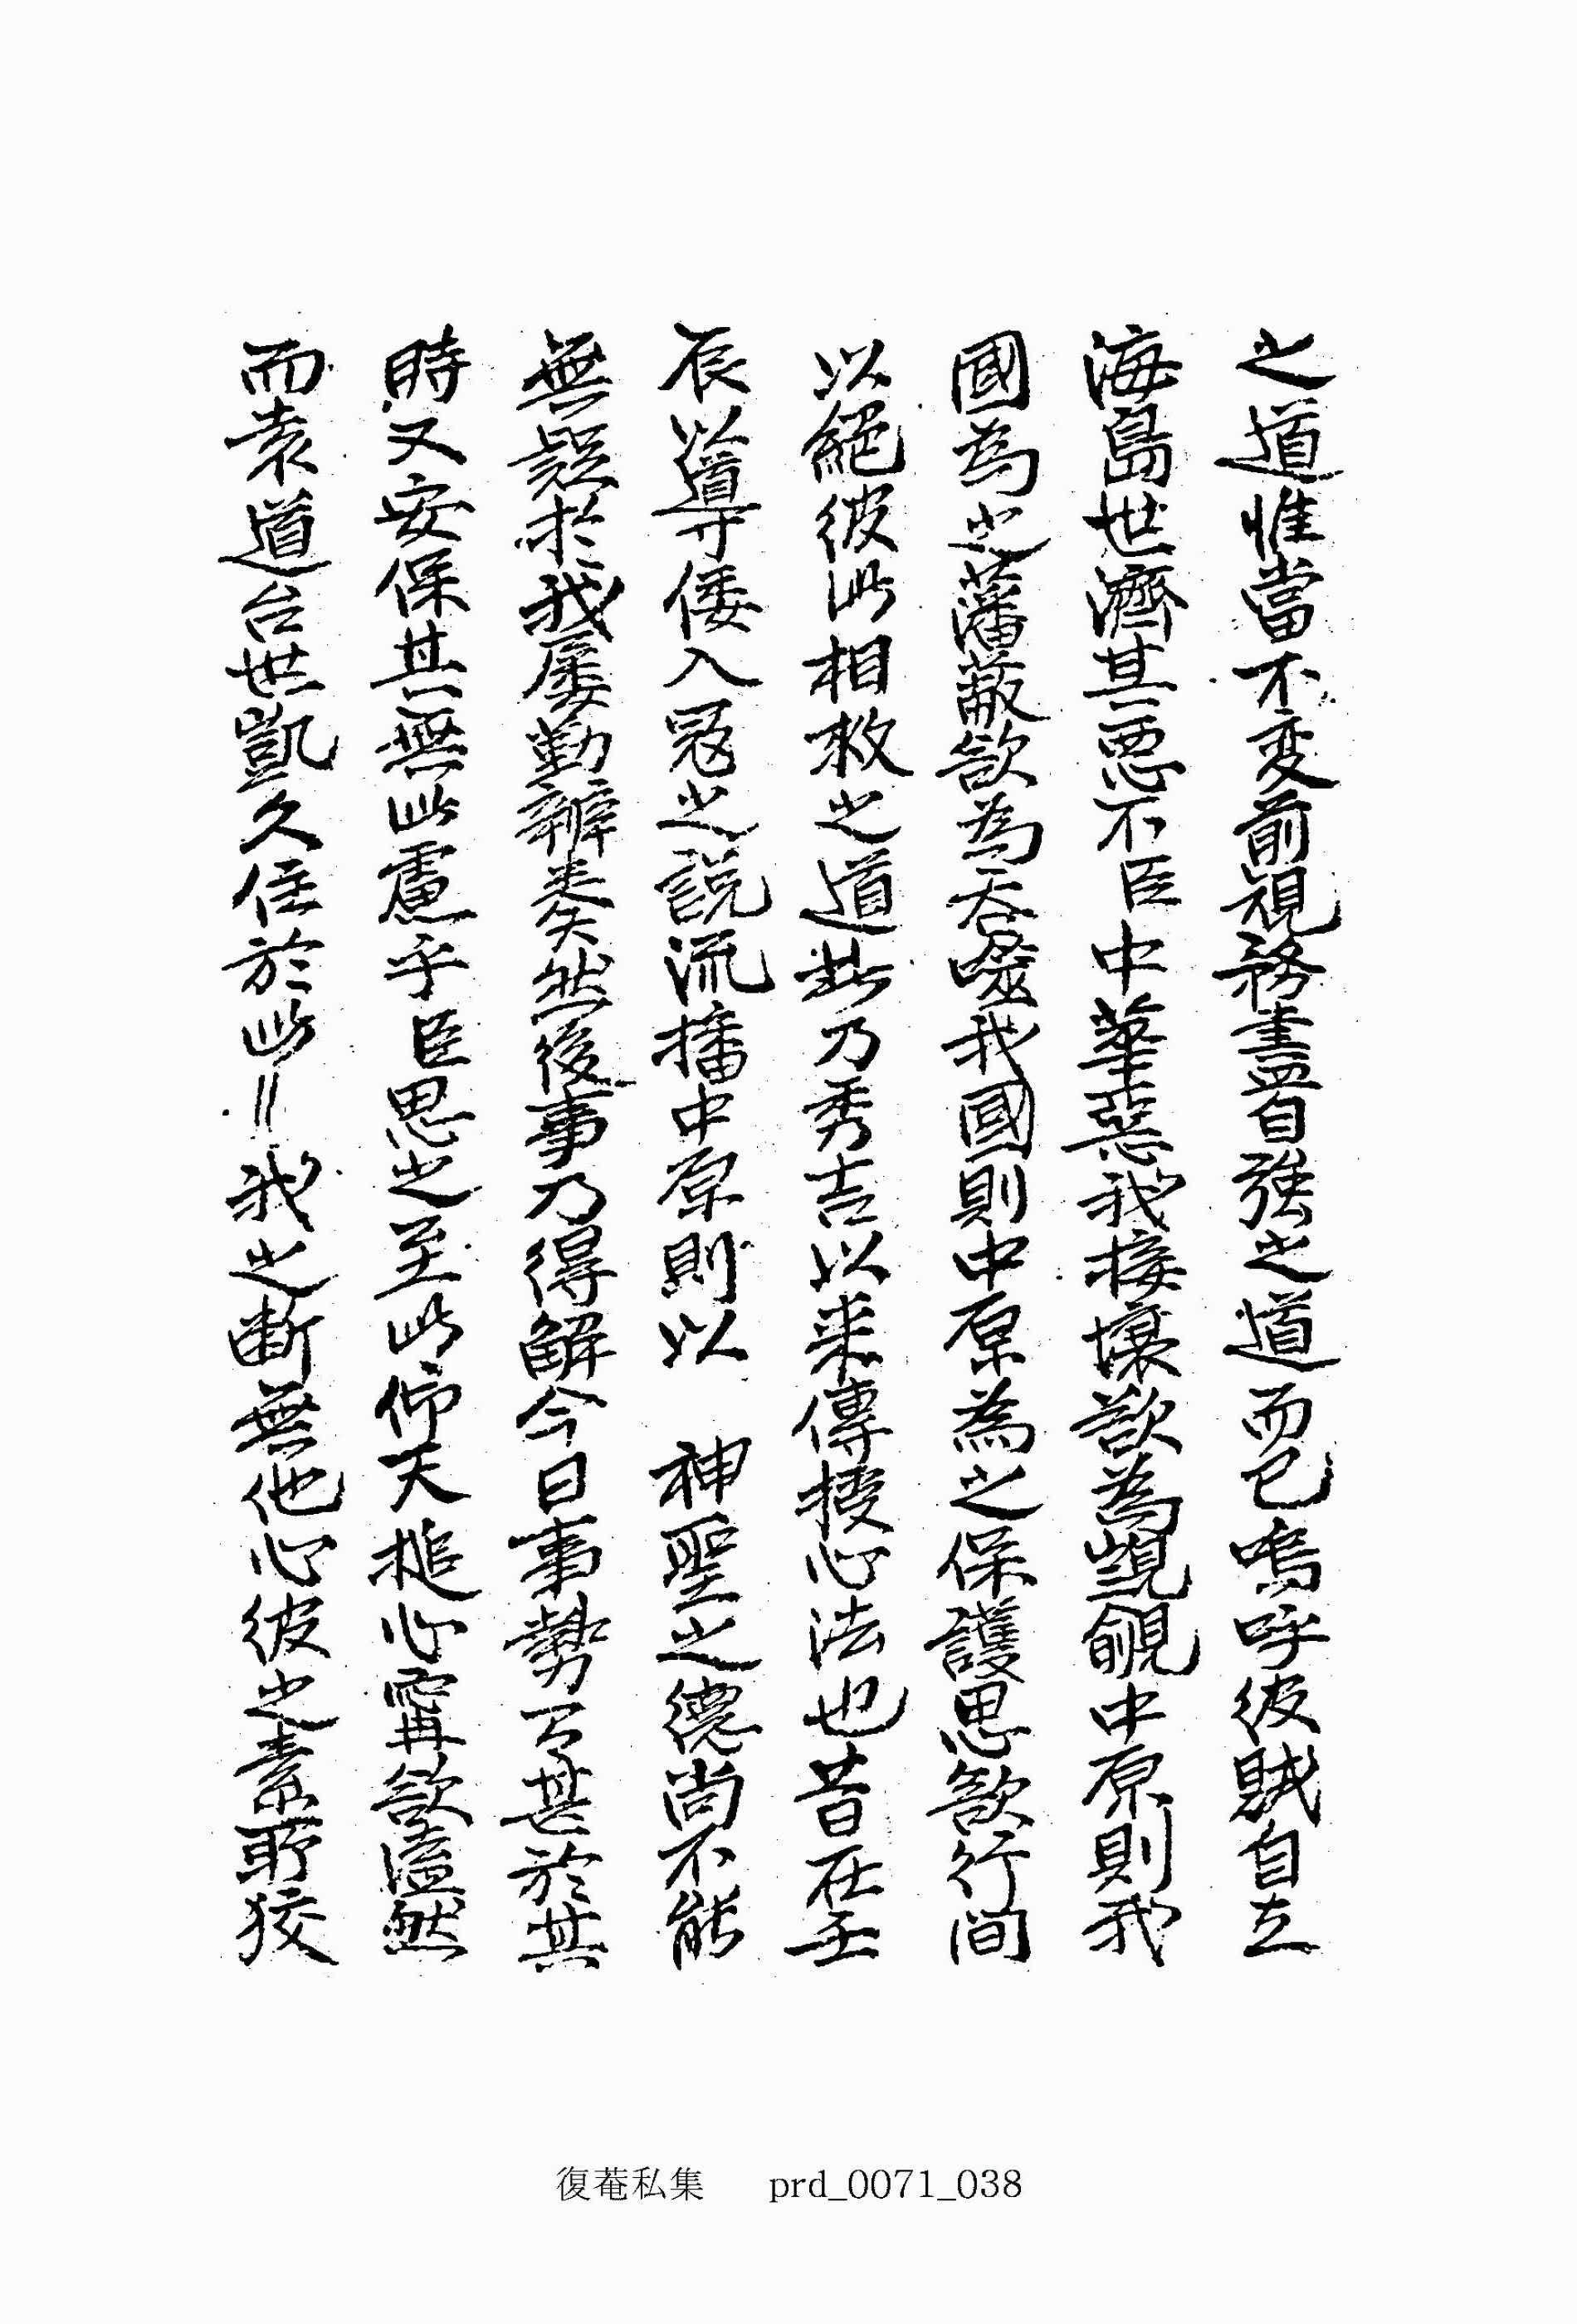 之道惟當不変前規務盡自強之道而已嗚呼彼賊自立
海島世濟其惡不臣中華惡我接壤欲為覬覦中原則我
國為之藩蔽欲為呑噬我國則中原為之保護思欲行間
以絕彼此相救之道此乃秀吉以来傳授心法也昔在壬
辰以導倭入冦之說流播中原則以 神聖之德尚不能
無疑於我屡勤辨奏矣然後事乃得解今日事勢又甚於其
時又安保其無此慮乎臣思之至此仰天搥心寧欲溘然
而袁道台世凱久住於此〃我之断無他心彼之素耶狡